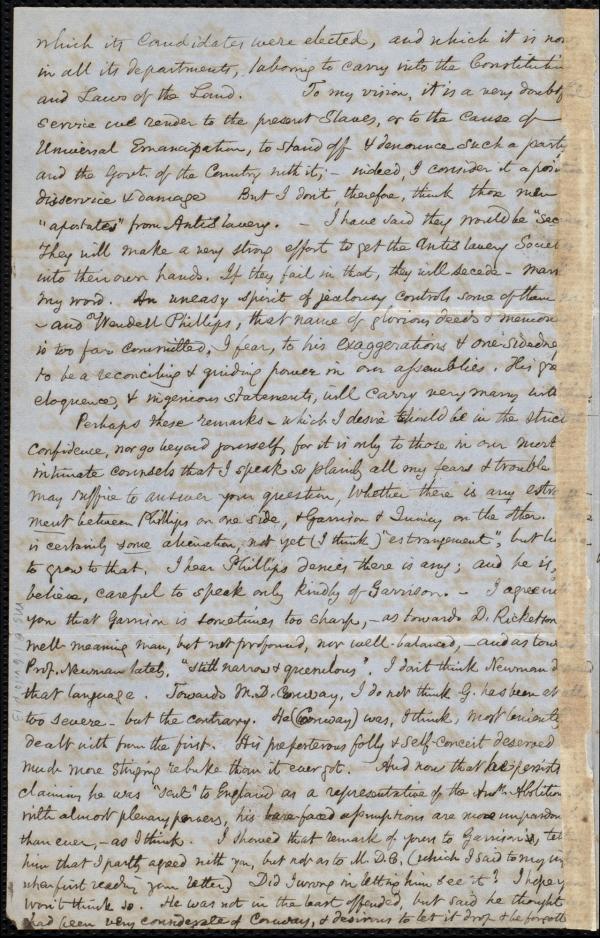 which its Candidates were elected, and which it is now
in all its departments, laboring to carry into the Constitution
and Laws of the Land. To my vision, it is a very doubtful
service we render to the present Slaves, or to the cause of
Universal Emancipation, to stand off & denounce such a party
and the Govt. of the Country with it; - indeed, I consider it a
disservice & damage But I don't, therefore, think those men
"apostates" from Antislavery. - I have said they would be "sec
They will make a very strong effort to get the Antislavery Societ
into their own hands. If they fail in that, they will secede - mark
my word. An uneasy spirit of jealousy controls some of them
- and Wendell Phillips, that name of glorious deeds & memor
is too far committed, I fear, to his exaggerations & one-sidedness
to be a reconciling & guiding power in our assemblies. His
eloquence, & ingenious statements, will carry very many with
Perhaps these remarks - which I desire should be in the strict
confidence, nor go beyond yourself, for it is only to those in our most
intimate counsels that I speak so plainly all my fears & trouble
may suffice to answer your question, Whether there is any estra
ment between Phillips on one side, & Garrison & Quincy on the other.
is certainly some alienation, not yet (I think) "estrangement", but
to grow to that. I hear Phillips denies there is any; and he is,
believe, careful to speak only kindly of Garrison. - I agree with
you that Garrison is sometimes too sharp, - as towards D. Ricketson
well-meaning man, but not profound, nor well-balanced, - and as tow
Prof. Newman lately, "still narrow & querulous". I don't think Newman d
that language. Towards M. D. Conway, I do not think G. has been at all
too severe - but the contrary. He (Conway) was, I think, most leniently
dealt with from the first. His preposterous folly & self-conceit deserved
much more stinging rebuke than it ever got. And now that he persists
claiming he was "sent" to England as a representative of the Am. Abolition
with almost plenary powers, his bare-faced assumptions are more unpardon
than ever, - as I think. I showed that remark of yours to Garrison, tell
him that I partly agreed with you, but not as to M. D. C. (which I said to my
when first reading your letter) Did I wrong in letting him see it? I hope y
won't think so. He was not in the least offended, but said he thought
had been very considerate of Conway, & desirous to let it drop & be forgott